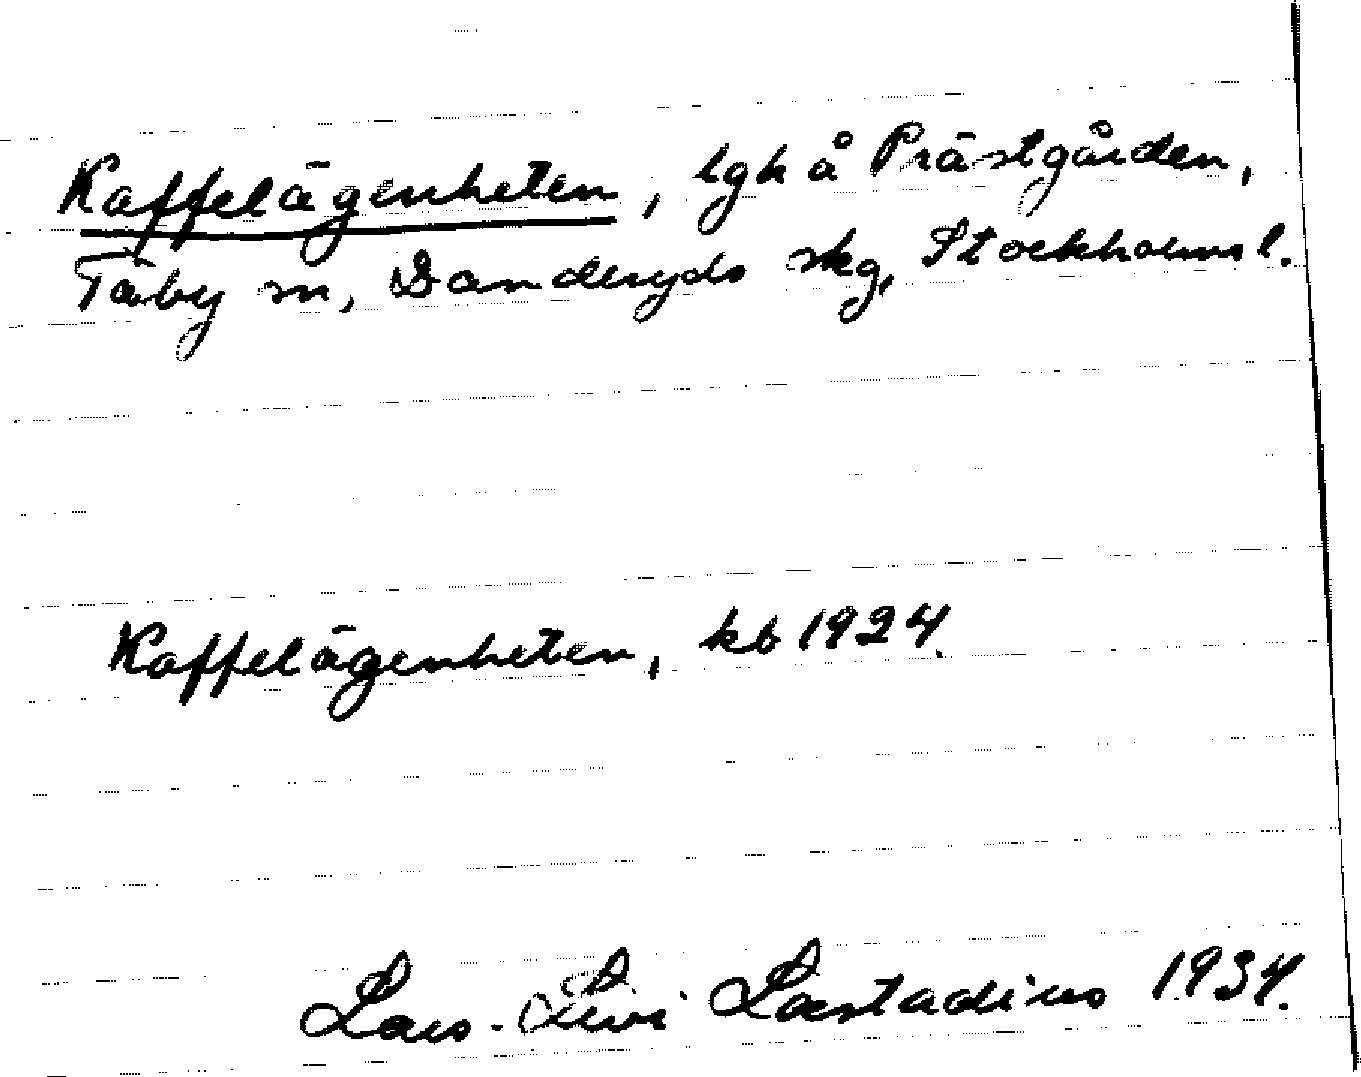 Kaffelägenheten, lgh å Prästgården,
Täby sn, Danderyds skg, Stockholms l.
Kaffelägenheten, kb 1924.
Lars-Levi Læstadius 1934.